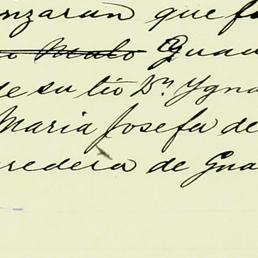 nzaran que f
Malo Guau
de su tio Dn. Ygna
Maria Josefa de
redera de Gua